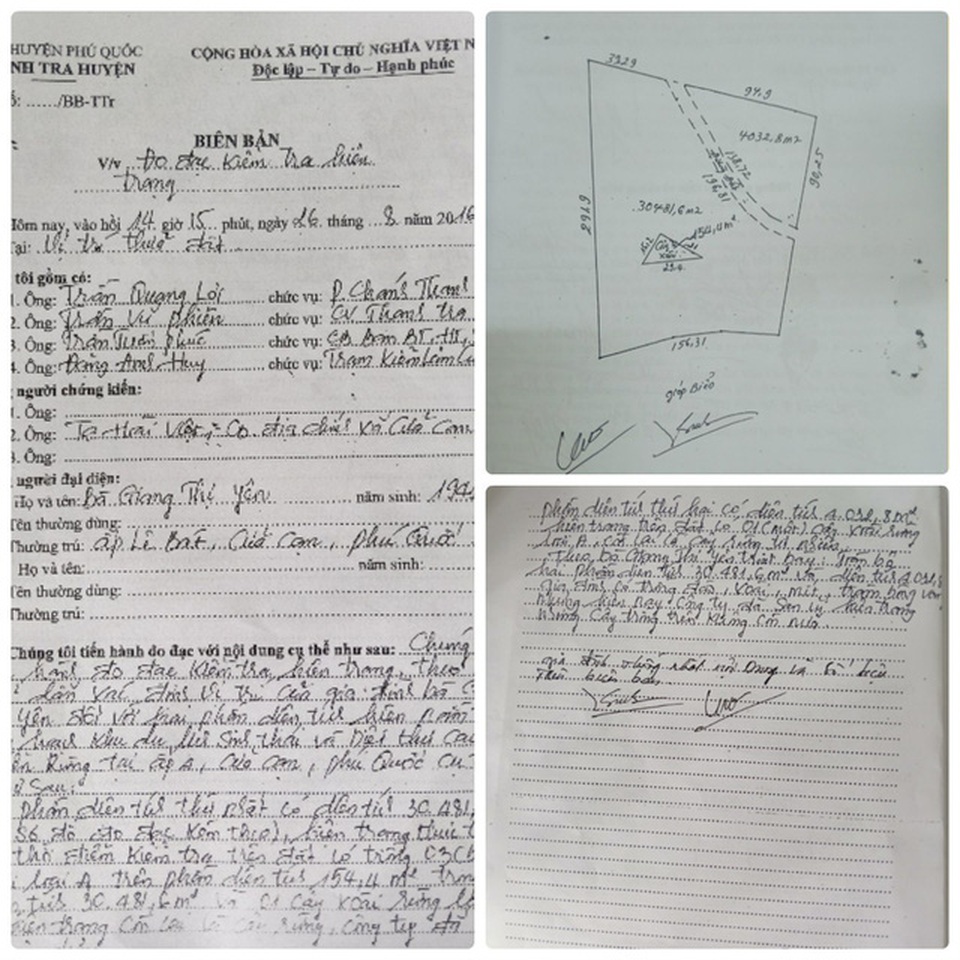 HUYỆN PHÚ QUỐC
NH TRA HUYỆN
CỘNG HÒA XÃ HỘI CHỦ NGHĨA VIỆT N
Độc lập – Tự do – Hạnh phúc
Ố: ....../BB-TTr
BIÊN BẢN
V/v Đo đạc kiểm tra hiện
trạng
Hôm nay, vào hồi 14 giờ 15 phút, ngày 26 tháng 8 năm 2016
Tại: Vị trí thửa đất
tôi gồm có:
1. Ông: Trần Quang Lời chức vụ: P. Chánh Thanh
2. Ông: Trần Vũ Phiên chức vụ: CV Thanh tra
3. Ông: Trần Tuấn Phúc chức vụ: CB Ban BT, HT,
4. Ông: Đặng Anh Huy chức vụ: Trạm Kiểm Lâm
người chứng kiến:
1. Ông:
2. Ông: Tạ Hoài Việt, CB địa chính xã Cửa Cạn
3. Ông:
người đại diện:
Họ và tên: Bà Giang Thị Yến năm sinh: 199
Tên thường dùng:
Thường trú: ấp Lê Bát, Cửa Cạn, Phú Quốc
Họ và tên: năm sinh:
Tên thường dùng:
Thường trú:
Chúng tôi tiến hành đo đạc với nội dung cụ thể như sau: Chúng
hành đo đạc kiểm tra hiện trạng, theo
dẫn xác định vị trí của gia đình bà
Yến đối với hai phần diện tích hiện nằm
Khu du lịch Sinh thái và
tại ấp 4, Cửa Cạn, Phú Quốc cụ
Sau:
phần diện tích thứ nhất có diện tích 30.481,
đồ đo đạc kèm theo), hiện trạng thực
thời điểm kiểm tra trên đất có trồng 03(
loại A trên phần diện tích 154,4 m² trong
tích 30.481,6 m² và 01 cây xoài rừng
hiện trạng còn lại là cây rừng, Công ty đã
39.29
94,9
4032,8m2
90,25
138,72
196,81
30481,6m2
154,4m²
Cây
xoài
156,31
giáp Biển
phần diện tích thứ hai có diện tích 4.032,8m²
hiện trạng trên đất có 01(một) cây xoài rừng
loại A, còn lại là cây rừng
Theo bà Giang Thị Yến trình bày: toàn bộ
hai phần diện tích 30.481,6 m² và diện tích 4.032,8
gia đình có trồng đào, xoài, mít, tràm bông vàng
nhưng hiện nay Công ty đã san ủi hiện trạng
những cây trồng trên không còn nữa.
gia đình thống nhất nội dung và số liệu
biên bản.